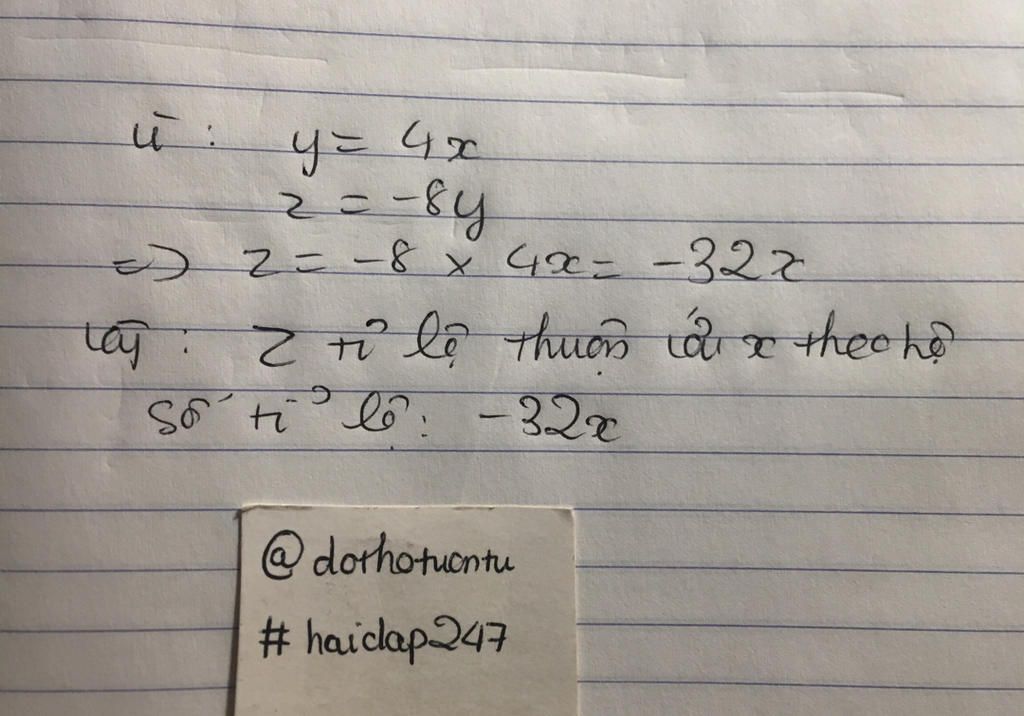 Vì : y = 4x
z = -8y
=> z = -8 × 4x = -32x
Vậy : z tỉ lệ thuận với x theo hệ
số tỉ lệ : -32x
@dothotuontu
#haidap247